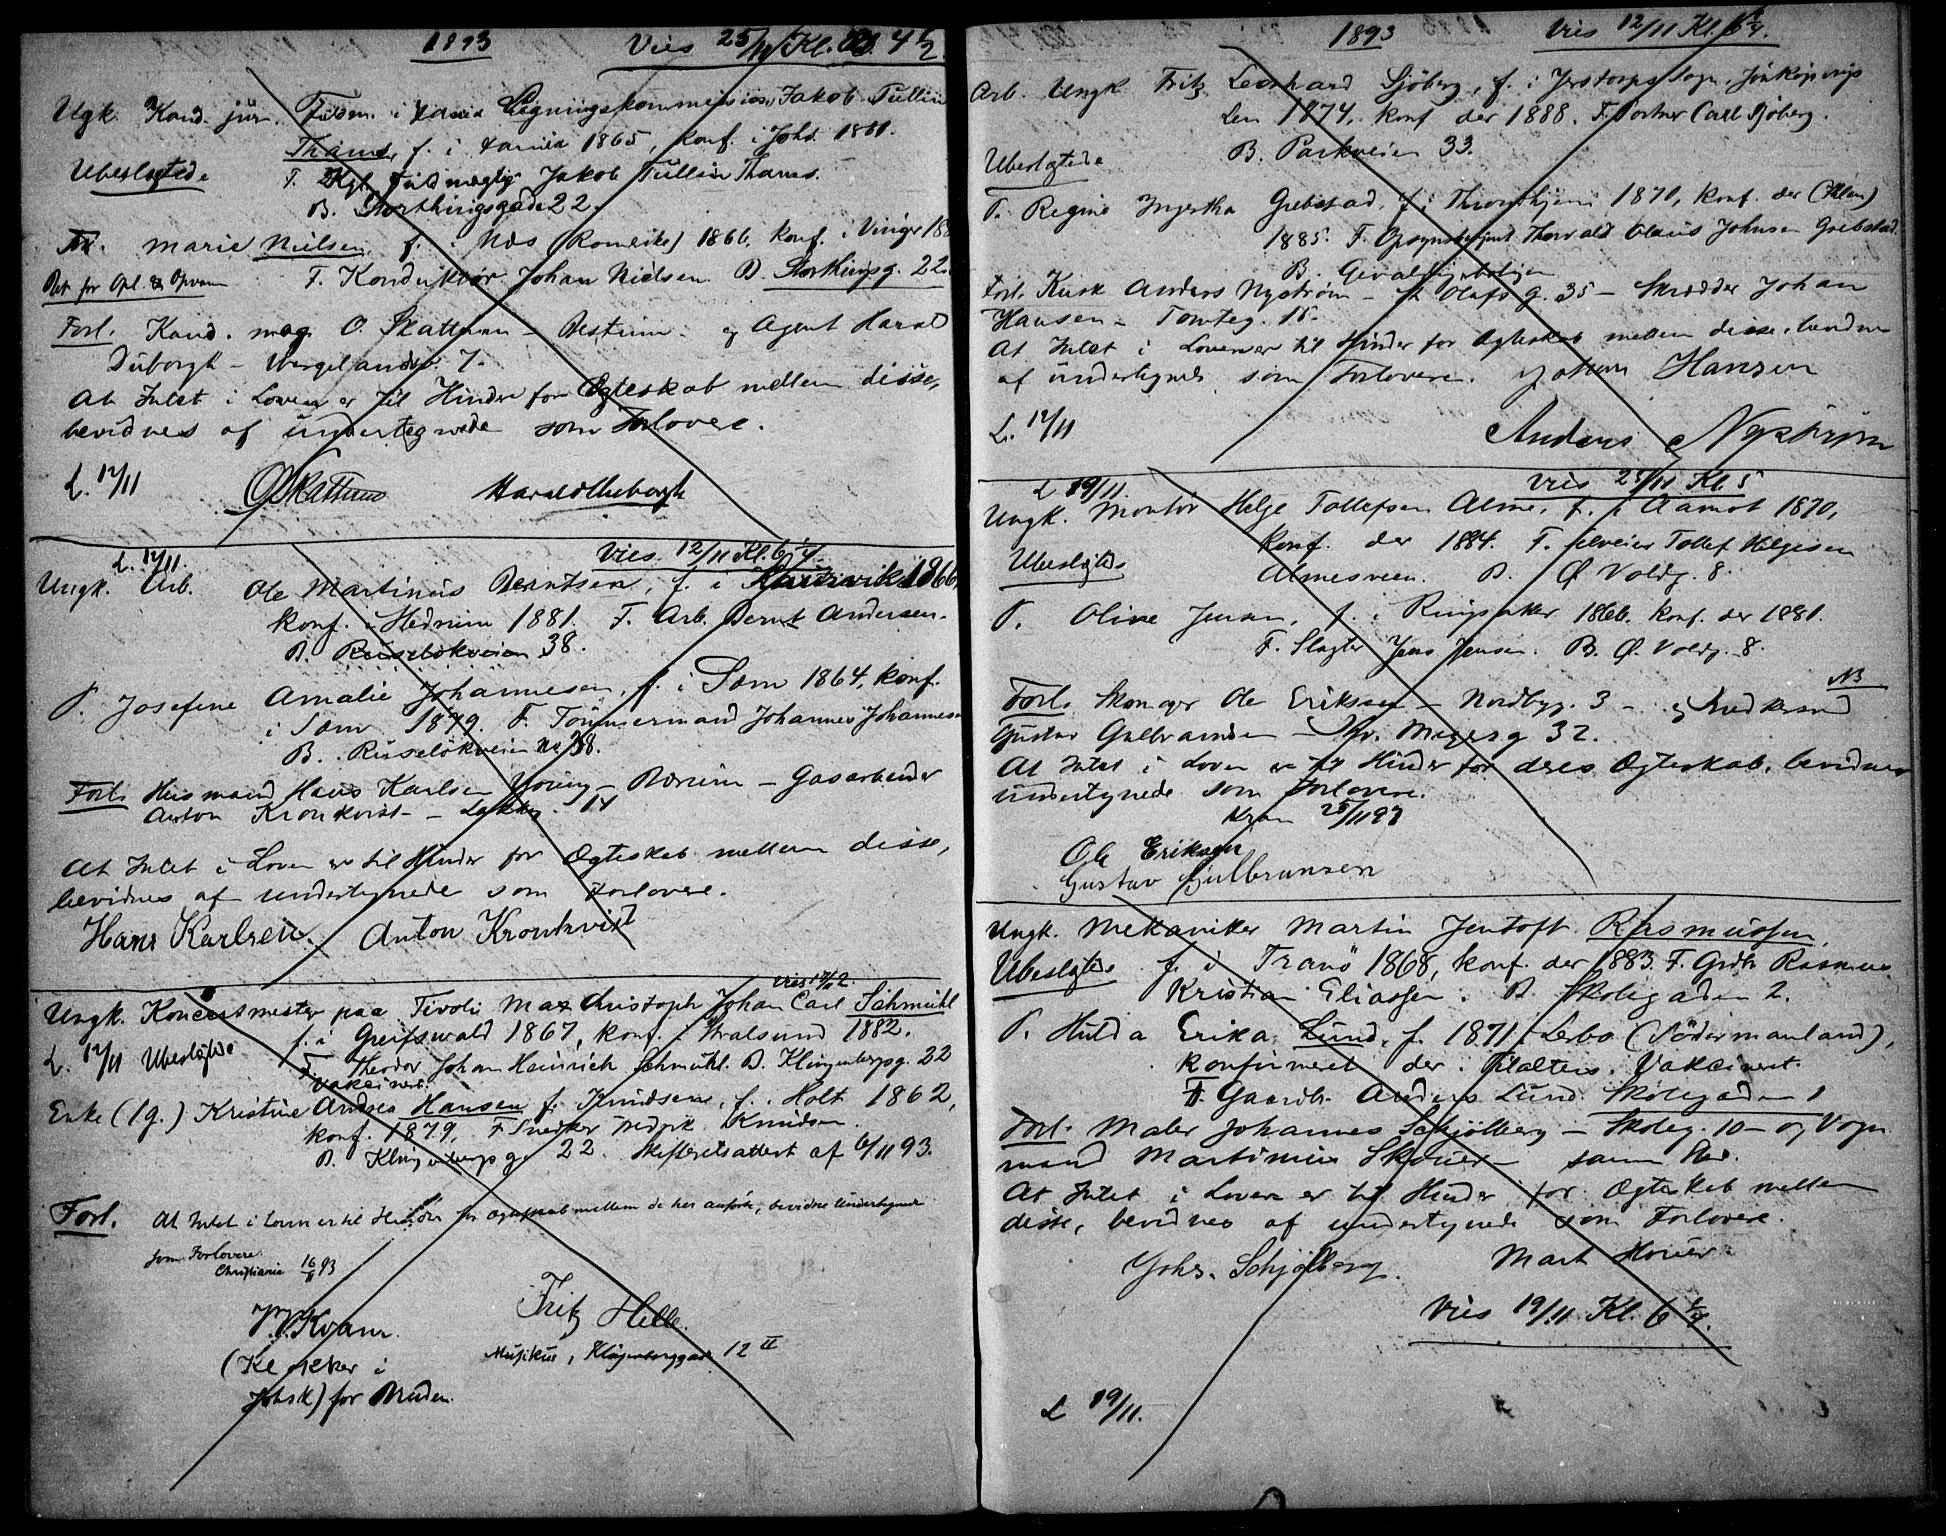 1893 Vies 25/11 Kl. 4 1/2
Ugk. Kand. jur. Fuldm. i Ligningskommission Jakob Tullin
Thams, f. i 1865, konf. i Johs. 1881.
Ubeslegtede F. Kgl. Fuldmægtig Jakob Tullin Thams.
B. Storthingsgade 22.
Marie Nielsen, f. i Nes (Romerike) 1866, konf. i Vinger
Bet for Opl. & F. Konduktør Johan Nielsen. B. Storthingsg. 22.
Forl. Kand. mag. O. Skattum – Bestum – og Agent Harald
Duborgh – 7.
At Intet i Loven er til Hinder for Ægteskab mellem disse,
bevidnes af undertegnede som Forlovere.
L. 12/11 O Skattum Harald Duborgh
L. 12/11. Vies 12/11 Kl. 6 1/4
Ungk. Arb. Ole Martinus Berntsen, f. i 1866,
konf. i Hedrum 1881. F. Arb. Bernt Andersen.
B. Ruseløkveien 38.
P. Josefine Amalie Johannesen, f. i Sem 1864, konf.
i Sem 1879. F. Tømmermand Johannes Johannesen
B. Ruseløkveien No. 38.
Forl. Husmand Hans Karlsen – Bærum – Gasarbeider
Anton Kronkvist – 14
At Intet i Loven er til Hinder for Ægteskab mellem disse,
bevidnes af undertegnede som Forlovere.
Hans Karlsen. Anton Kronkvist
Vies 12
Ungk. Koncertmester paa Tivoli Max Christoph Johan Carl Schmuhl
f. i Greifswald 1867, konf. i Stralsund 1882.
L. 12/11 Ubeslegtede F. Theodor Johan Heinrich Schmuhl. B. Klingenbergg. 22
Vakcineret.
Enke (1g.) Kristine Andrea Hansen f. Knudsen, f. i Holt 1862,
konf. 1879, F. Snedker Fredrik Knudsen.
B. Klingenbergsg. 22. Skifteretsattest af 6/11 93.
Forl. At Intet i Loven er til Hinder for Ægteskab mellem de her anførte, bevidnes Undertegnede
som Forlovere.
Christiania 16/11 93
Kvam. Fritz Hille.
(Klokker i Musikus, Klingenberggade 12 II
Johs.k) for Bruden.
1893 Vies 12/11 Kl. 6 1/4.
Arb. Ungk. Fritz Leonhard Sjöberg, f. i Sogn, Jönköpings
Len 1874, konf. der 1888. F. Portner Carl Sjöberg.
Ubeslegtede B. Parkveien 33.
P. Regine Grebstad, f. i Thronhjem 1870, konf. der
1885. F. Opsynsbetjent Thorvald Claus Johnsen Grebstad
B.
Forl. Kusk Anders Nystrøm – St. Olafs g. 35 – Skrædder Johan
Hansen – Tomteg. 15.
At Intet i Loven er til Hinder for Ægteskab mellem disse, bevidnes
af undertegnede som Forlovere. Johan Hansen
L. 12/11 Anders Nyström
L 19/11. Vies 25/11 Kl. 5
Ungk. Montør Helge Tollefsen Alme, f. i Aamot 1870,
Ubeslegtede konf. der 1884. F. Selveier Tollef Helgesen
Almesveen. B. Ø. Voldg. 8.
P. Oline Jensen, f. i Ringsaker 1866, konf. der 1881.
F. Slagter Jens Jensen. B. Ø. Voldg. 8.
NB
Forl. Skomager Ole Eriksen – Nordbyg. 3 – og
Gustav Gulbransen – Meyersg. 32.
At Intet i Loven er til Hinder for deres Ægteskab, bevidnes
undertegnede som Forlovere.
25/11 93
Ole Eriksen
Gustav Gulbransen
Ungk. Mekaniker Martin Jentoft Rasmussen,
Ubeslegtede f. i Tranø 1868, konf. der 1883. F. Gdbr. Rasmus
Kristian Eliassen. B. Skolegaden 2.
P. Hulda Erika Lund, f. 1871 i Lerbo (Södermanland),
konfirmeret der. Vakcineret.
F. Gaardbr. Anders Lund. Skolegaden
Forl. Maler Johannes Schjølberg – Skoleg. 10 – og Vogn-
mand
At Intet i Loven er til Hinder for Ægteskab mellem
disse, bevidnes af undertegnede som Forlovere.
Johs. Schjølberg.
Vies 19/11 Kl. 6 1/4.
L 19/11.